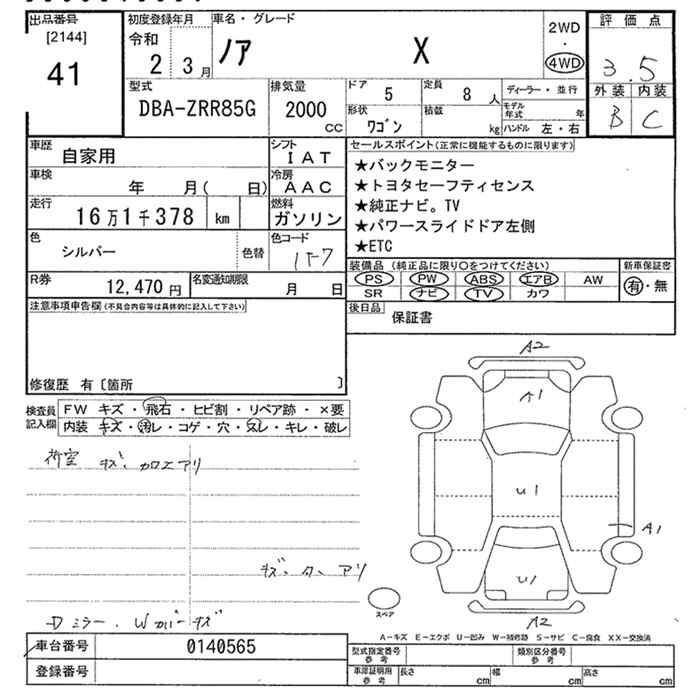 出品番号 初度登録年月 車名・グレード 評価点
[2144] 令和 2WD
41 2 3月 ノア X ・
4WD 3.5
型式 排気量 ドア 5 定員 8 人 ディーラー・並行 外装 内装
DBA-ZRR85G 2000 モデル年式 年 B C
cc 形状 ワゴン 積載 kg ハンドル 左・右
車歴 自家用 シフト セールスポイント(正常に機能するものに限ります)
IAT ★バックモニター
車検 年 月( 日) 冷房 AAC ★トヨタセーフティセンス
走行 16万1千378 km 燃料 ガソリン ★純正ナビ。TV
★パワースライドドア左側
色 シルバー 色替 色コード 1F7 ★ETC
装備品(純正品に限り○をつけてください) 新車保証書
R券 12,470円 名変通知期限 月 日 PS PW ABS エアB AW 有・無
SR ナビ TV カワ
注意事項申告欄(不具合内容等は具体的に記入して下さい) 後日品 保証書
修復歴 有〔箇所 〕
検査員 FW キズ・飛石・ヒビ割・リペア跡・×要
記入欄 内装 キズ・汚レ・コゲ・穴・スレ・キレ・破レ
A2
A1
荷室 キズ、カロエアリ
U1
A1
キズ、タ、アリ
U1
スペア
Dミラー、Wカバーキズ
A2
A-キズ E-エクボ U-凹み W-補修跡 S-サビ C-腐食 XX-交換済
車台番号 0140565 型式指定番号 参考 類別区分番号 参考
登録番号 車庫証明用 参考 長さ cm 幅 cm 高さ cm